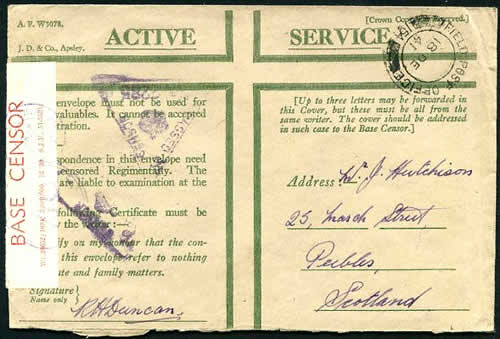 A. F. W3078.
[Crown Copyright Reserved.]
J. D. & Co., Apsley.
ACTIVE SERVICE
FIELD POST OFFICE
DE
41
BASE CENSOR
envelope must not be used for
valuables. It cannot be accepted
tration.
pondence in this envelope need
censored Regimentally. The
are liable to examination at the
following Certificate must be
the writer:—
ify on my honour that the con-
this envelope refer to nothing
ate and family matters.
Signature
Name only
R H Duncan.
[Up to three letters may be forwarded in
this Cover, but these must be all from the
same writer. The cover should be addressed
in such case to the Base Censor.]
Address:
J. Hutchison
25, March Street,
Peebles
Scotland